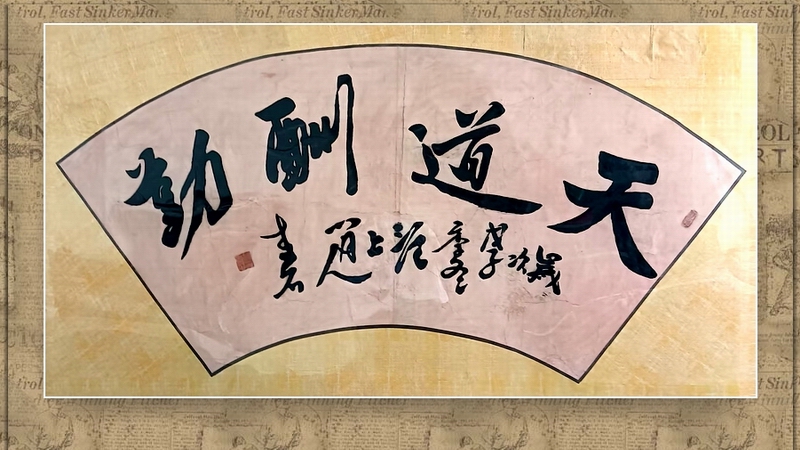 天道酬勤
歲次戊子冬 上 書
trol, Fast Sinker Mar. trol, Fast Sinker Mar. trol, Fast Sinker Mar.